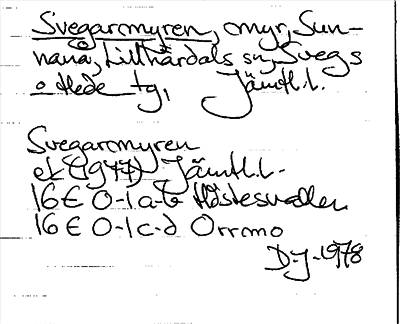 Svegarmyren, myr, Sun-
nanå, Lillhärdals sn, Svegs
o Hede tg, Jämtl.l.
Svegarmyren
ek (1977) Jämtl.l.
16E 0-1 a-b Höstesvallen
16E 0-1 c-d Orrmo
D-J-1978